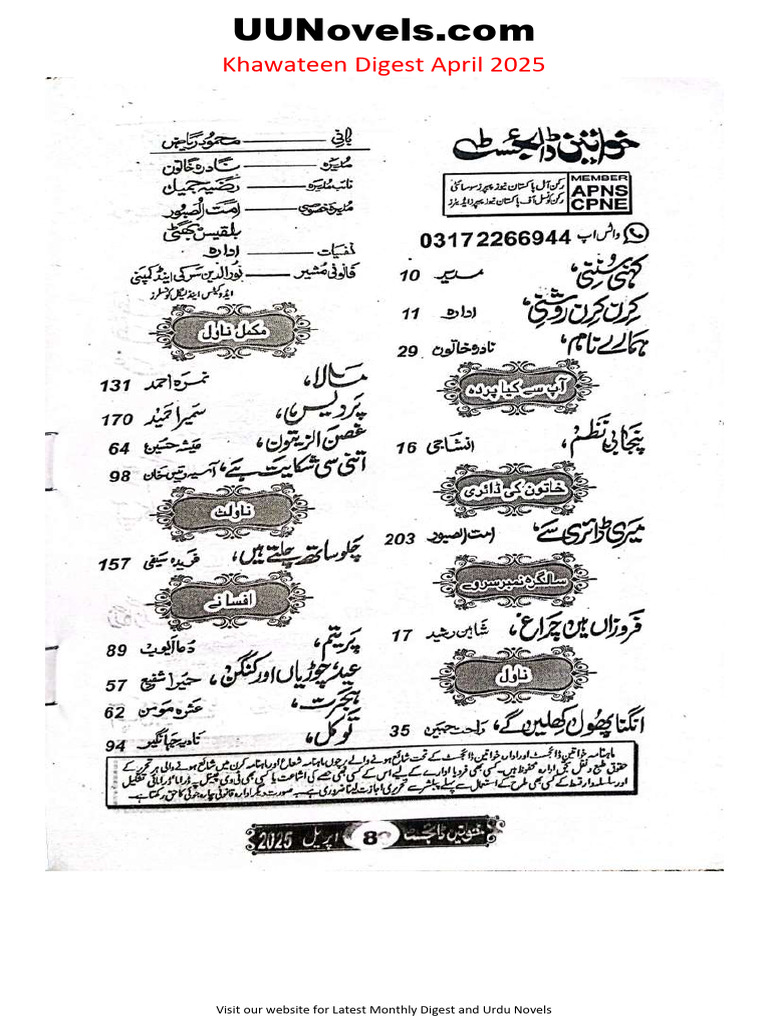 UUNovels.com
Khawateen Digest April 2025
خواتین ڈائجسٹ
رکن آل پاکستان نیوز پیپرز سوسائٹی
رکن کونسل آف پاکستان نیوز پیپرز ایڈیٹرز
MEMBER
APNS
CPNE
واٹس اپ 03172266944
کہنی سُننی، مدیر 10
کِرن کِرن روشنی، ادارہ 11
ہمارے نام، نادرہ خاتون 29
آپ سے کیا پردہ
پنجابی نَظم، انشاجی 16
خاتون کی ڈائری
میری ڈائری سے، امت الصبور 203
سالگرہ نمبر سروے
فروزاں ہیں چراغ، شاہین رشید 17
ناول
انگنا پھول کھلیں گے، راحت جبیں 35
بانی محمود ریاض
مدیرہ نادرہ خاتون
نائب مدیرہ رضیہ جمیل
مدیرہ خصوصی امت الصبور
بلقیس بھٹی
نفسیات ادارہ
قانونی مشیر نورالدین سرکی اینڈ کمپنی
ایڈوکیٹس اینڈ لیگل کونسلرز
مکمل ناول
مالا، نمرہ احمد 131
پردیس، سمیرا حمید 170
غصن الزیتون، 64
اتنی سی شکایت ہے، 98
ناولٹ
چلو ساتھ چلتے ہیں، فریدہ سیفی 157
افسانے
پریتم، دعا ایوب 89
عید، چوڑیاں اور کنگن، حمیرا شفیع 57
ہجرت، عشرہ مومن 62
توکل، نادیہ جہانگیر 94
ماہنامہ خواتین ڈائجسٹ اور ادارہ خواتین ڈائجسٹ کے تحت شائع ہونے والے پرچوں ماہنامہ شعاع اور ماہنامہ کرن میں شائع ہونے والی ہر تحریر کے
حقوق طبع و نقل بحق ادارہ محفوظ ہیں۔ کسی بھی فرد یا ادارے کے لیے اس کے کسی بھی حصے کی اشاعت یا کسی بھی ٹی وی چینل پہ ڈراما ڈرامائی تشکیل
اور سلسلہ وار قسط کے کسی بھی طرح کے استعمال سے پہلے پبلشر سے تحریری اجازت لینا ضروری ہے۔ بہ صورت دیگر ادارہ قانونی چارہ جوئی کا حق رکھتا ہے۔
خواتین ڈائجسٹ 8 اپریل 2025
Visit our website for Latest Monthly Digest and Urdu Novels